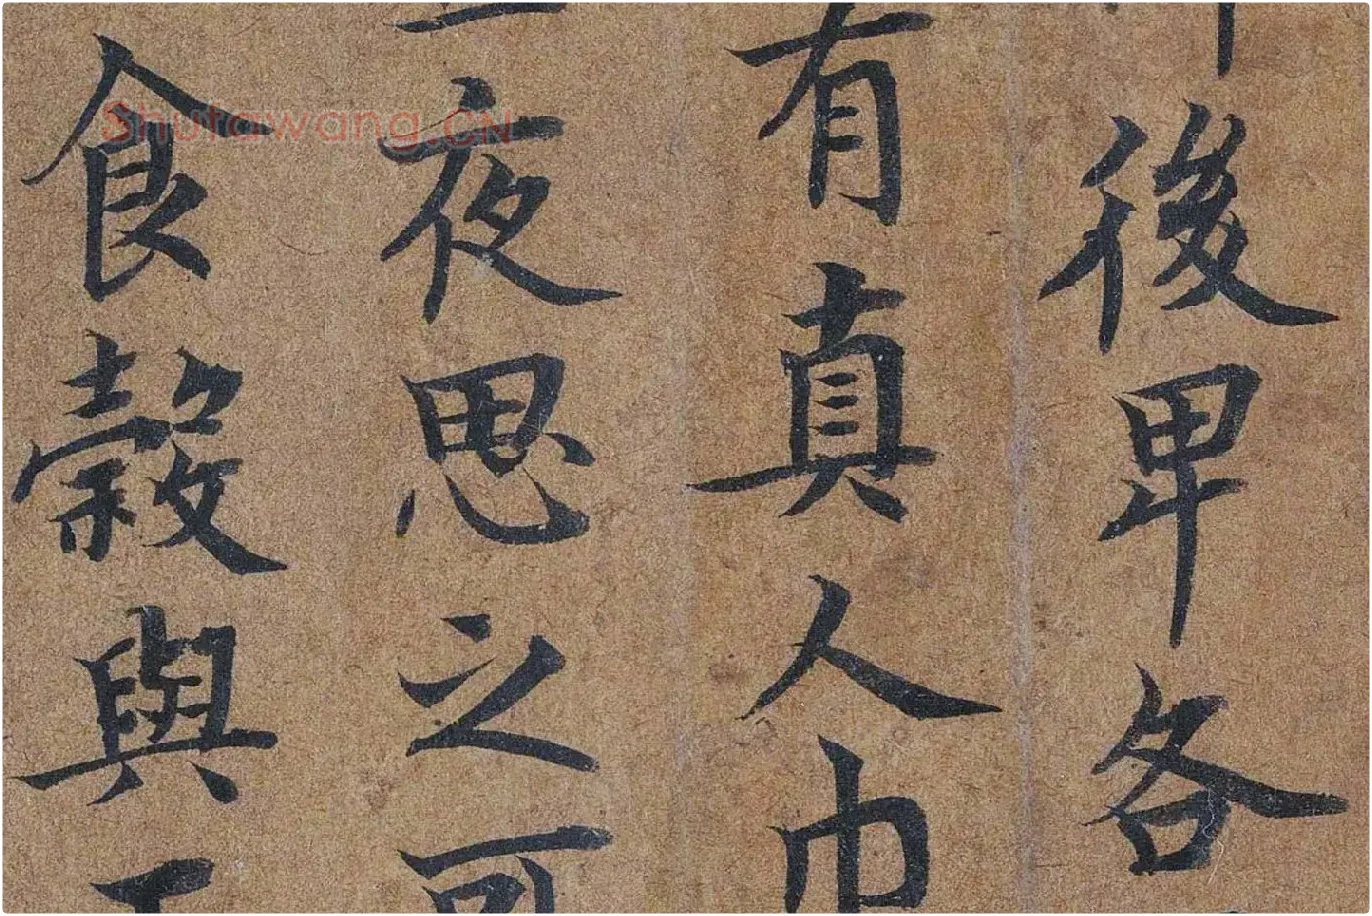 後卑各
有真人巾
夜思之可
食穀與
Shutawang.CN